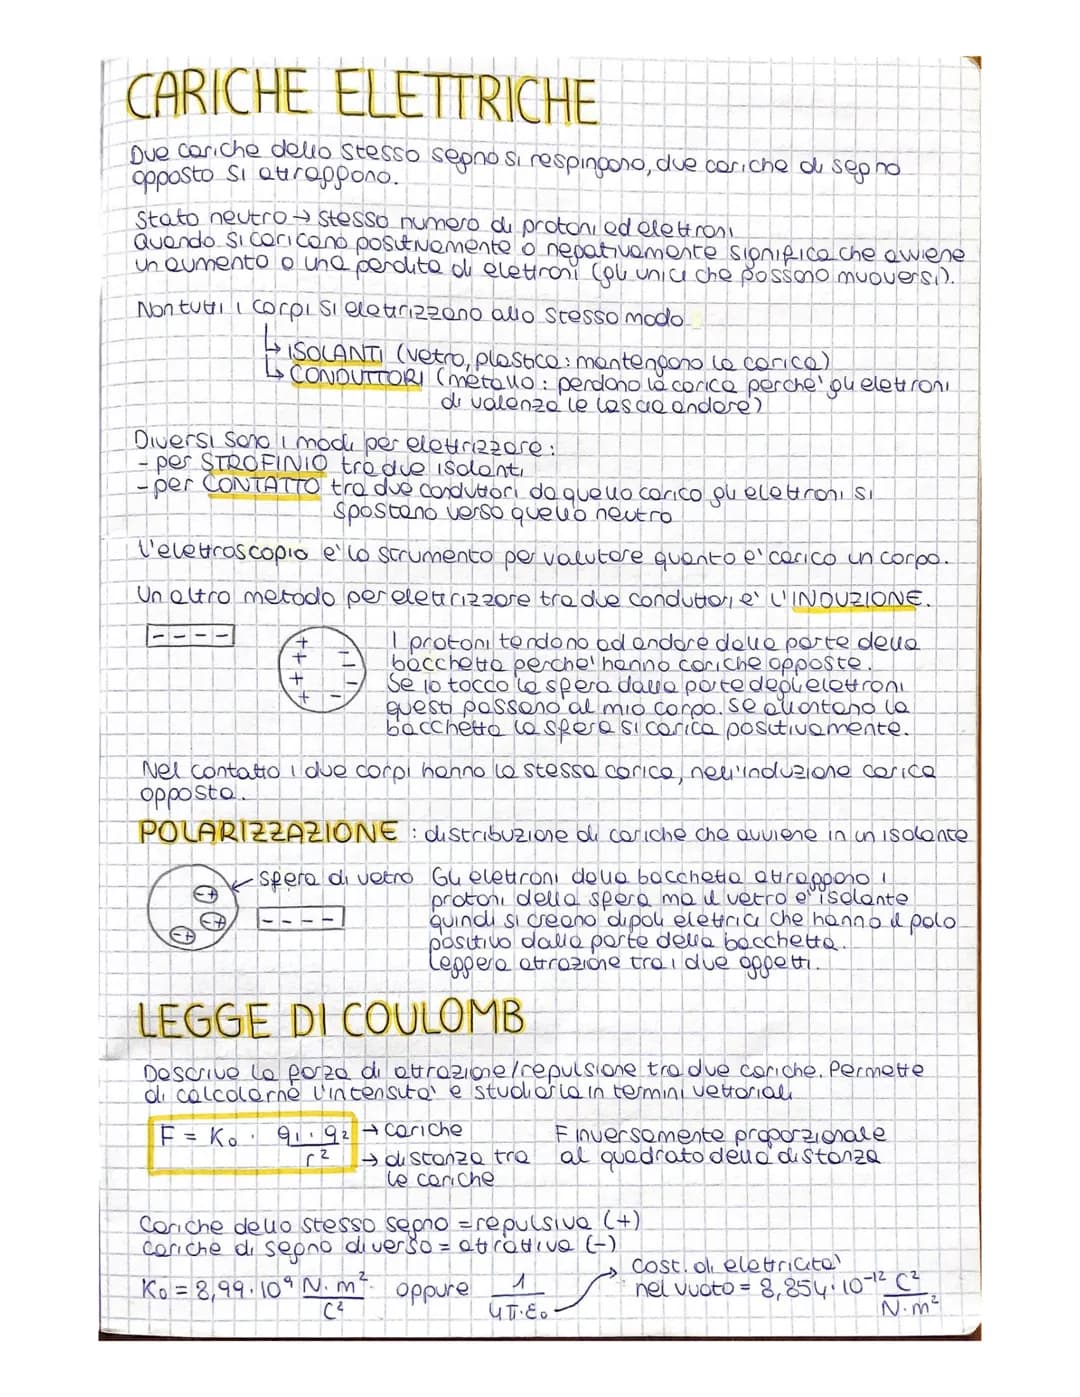 CARICHE ELETTRICHE
Due cariche dello stesso segno si respingono, due cariche di segno
opposto si attraggono.
Stato neutro → stesso numero di protoni ed elettroni
Quando si caricano positivamente o negativamente significa che avviene
un aumento o una perdita di elettroni (gli unici che possono muoversi).
Non tutti i corpi si elettrizzano allo stesso modo
↳ ISOLANTI (vetro, plastica: mantengono la carica)
↳ CONDUTTORI (metallo: perdono la carica perche' gli elettroni
di valenza le lascia andare)
Diversi sono i modi per elettrizzare:
- per STROFINIO tra due isolanti
- per CONTATTO tra due conduttori da quello carico gli elettroni si
spostano verso quello neutro
L'elettroscopio e' lo strumento per valutare quanto e' carico un corpo.
Un altro metodo per elettrizzare tra due conduttori e' L'INDUZIONE.
- - - -
+ + + +
- - -
I protoni tendono ad andare dalla parte della
bacchetta perche' hanno cariche opposte.
Se io tocco la sfera dalla parte degli elettroni
questi passano al mio corpo. Se allontano la
bacchetta la sfera si carica positivamente.
Nel contatto i due corpi hanno la stessa carica, nell'induzione carica
opposta.
POLARIZZAZIONE : distribuzione di cariche che avviene in un isolante
sfera di vetro
-+
-+
-+
- - - -
Gli elettroni della bacchetta attraggono i
protoni della sfera ma il vetro e' isolante
quindi si creano dipoli elettrici che hanno il polo
positivo dalla parte della bacchetta.
Leggera attrazione tra i due oggetti.
LEGGE DI COULOMB
Descrive la forza di attrazione/repulsione tra due cariche. Permette
di calcolarne l'intensita' e studiarla in termini vettoriali
F = K₀ · q₁·q₂ → cariche
r² → distanza tra
le cariche
F inversamente proporzionale
al quadrato della distanza
Cariche dello stesso segno = repulsiva (+)
Cariche di segno diverso = attrattiva (-)
K₀ = 8,99·10⁹ N·m²/C² oppure 1/4π·ε₀
cost. di elettricita'
nel vuoto = 8,854·10⁻¹² C²/N·m²